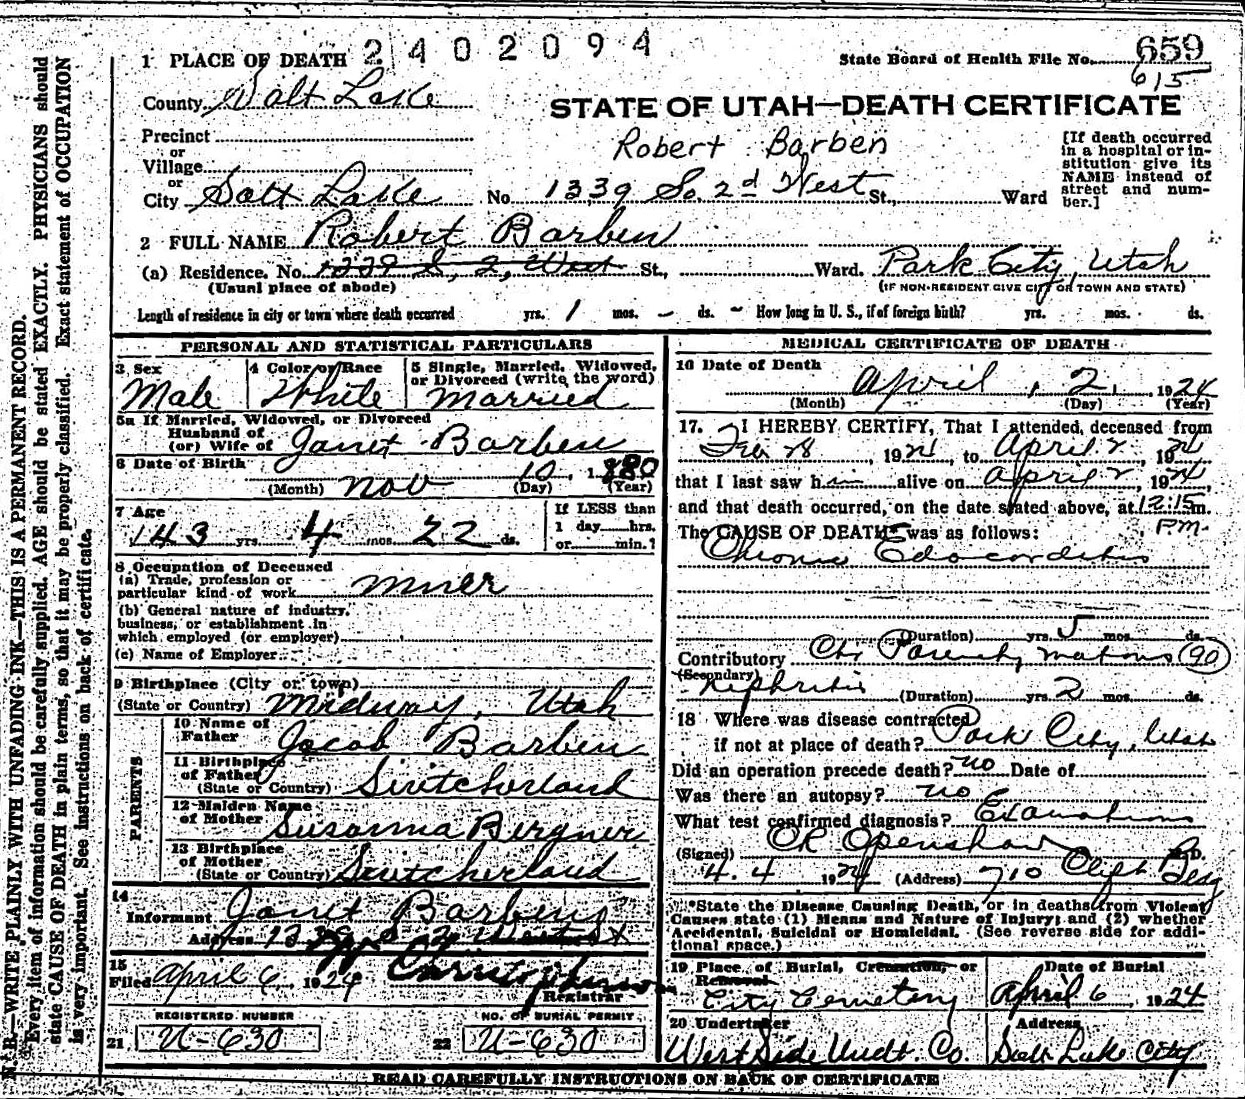 1 PLACE OF DEATH 2402094
State Board of Health File No. 659
615
County Salt Lake
STATE OF UTAH—DEATH CERTIFICATE
Precinct
or
Village
or
Robert Barben
[If death occurred in a hospital or in-stitution give its NAME instead of street and num-ber.]
City Salt Lake No. 1339 So. 2d West St., Ward
2 FULL NAME Robert Barben
(a) Residence. No. 1339 S, 2, West St., Ward. Park City, Utah
(Usual place of abode) (IF NON-RESIDENT GIVE CITY OR TOWN AND STATE)
Length of residence in city or town where death occurred yrs. 1 mos. — ds. — How long in U. S., if of foreign birth? yrs. mos. ds.
PERSONAL AND STATISTICAL PARTICULARS
3 Sex
Male
4 Color or Race
White
5 Single, Married, Widowed, or Divorced (write the word)
Married
5a If Married, Widowed, or Divorced
Husband of
(or) Wife of Janet Barben
6 Date of Birth
Nov 10, 1880
(Month) (Day) (Year)
7 Age
43 yrs. 4 mos. 22 ds.
If LESS than
1 day hrs.
or min.?
8 Occupation of Deceased
(a) Trade, profession or
particular kind of work Miner
(b) General nature of industry,
business, or establishment in
which employed (or employer)
(c) Name of Employer
9 Birthplace (City or town)
(State or Country) Midway, Utah
PARENTS
10 Name of
Father Jacob Barben
11 Birthplace
of Father
(State or Country) Switcherland
12 Maiden Name
of Mother Susanna Bergner
13 Birthplace
of Mother
(State or Country) Switcherland
14
Informant Janet Barben
Address 1339 So 2 West St
15
Filed April 6 1924
Registrar
REGISTERED NUMBER
21 U-630
NO. OF BURIAL PERMIT
22 U-630
MEDICAL CERTIFICATE OF DEATH
16 Date of Death
April, 2, 1924
(Month) (Day) (Year)
17. I HEREBY CERTIFY, That I attended, deceased from
Feb 1924, to April 2 1924
that I last saw him alive on April 2 1924,
and that death occurred, on the date stated above, at 12:15 m.
P.M.
The CAUSE OF DEATH* was as follows:
Chronic Edocorditis
(Duration) yrs. 5 mos. ds.
Contributory Chr Parenchymatous 90
(Secondary)
Nephritis (Duration) yrs. 2 mos. ds.
18 Where was disease contracted
if not at place of death? Park City, Utah
Did an operation precede death? no Date of
Was there an autopsy? no
What test confirmed diagnosis? Examations
(Signed) OR Openshaw M. D.
4. 4 1924 (Address) 710 Clift Bldg
*State the Disease Causing Death, or in deaths from Violent
Causes state (1) Means and Nature of Injury; and (2) whether
Accidental, Suicidal or Homicidal. (See reverse side for addi-
tional space.)
19 Place of Burial, Cremation, or
Removal
City Cemetery
Date of Burial
April 6, 1924
20 Undertaker
West Side Undt. Co.
Address
Salt Lake City
READ CAREFULLY INSTRUCTIONS ON BACK OF CERTIFICATE
N. B.—WRITE PLAINLY WITH UNFADING INK—THIS IS A PERMANENT RECORD.
Every item of information should be carefully supplied. AGE should be stated EXACTLY. PHYSICIANS should
state CAUSE OF DEATH in plain terms, so that it may be properly classified. Exact statement of OCCUPATION
is very important. See instructions on back of certificate.